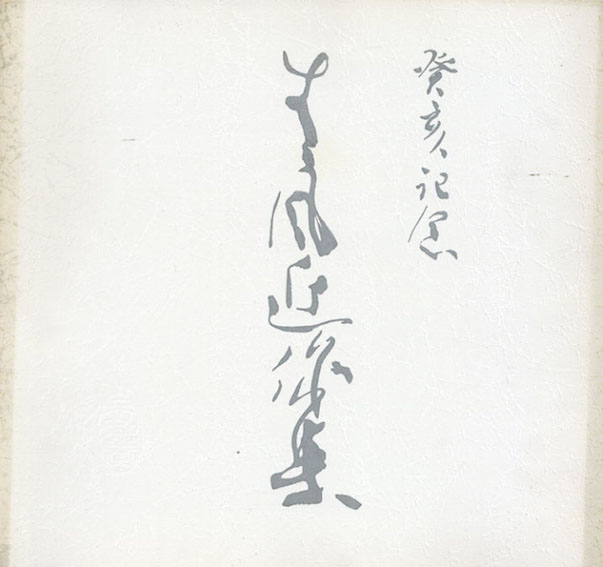 癸亥記念
風近作集